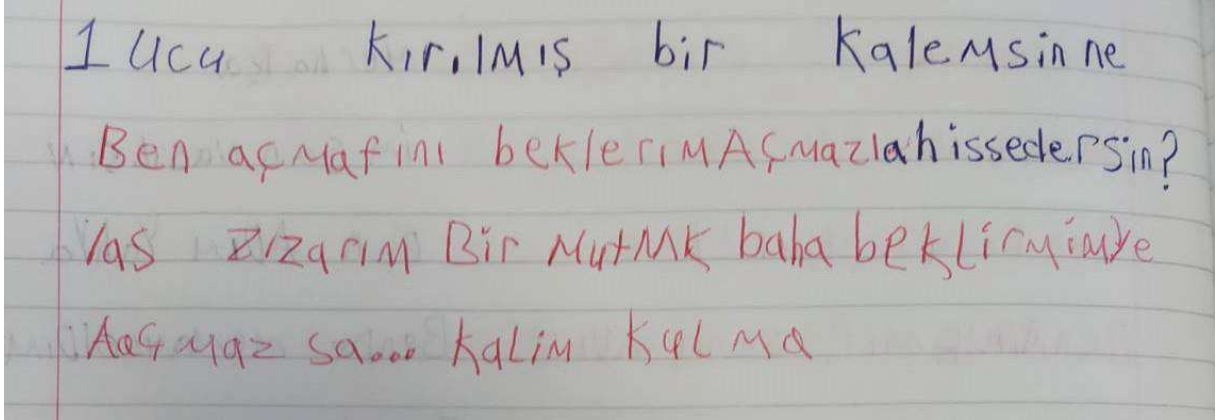 1 Ucu kırılmış bir kalemsin ne
Ben açmafini beklerim Açmazla hissedersin?
las zızarım Bir MutMK baha beklirmimye
Aaçmaz sa... kalim kulma